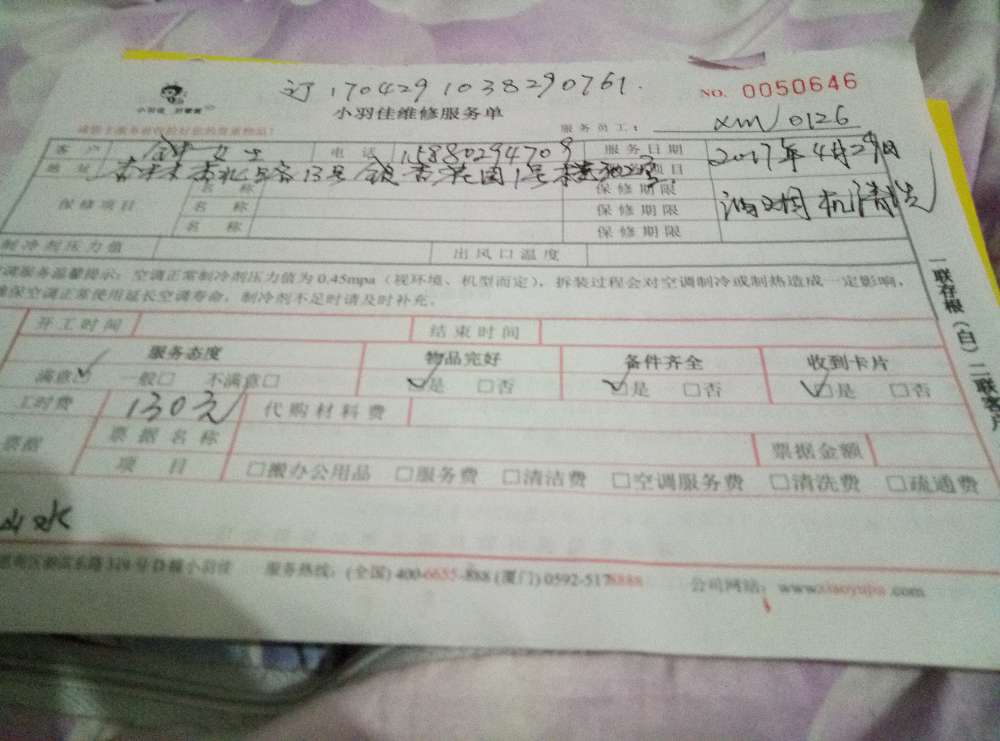 订1704291038290761.
NO. 0050646
小羽佳
小羽佳维修服务单
服务员工: XM 0126
客户 女士 电话 15880294709 服务日期 2017年4月29日
地址 13号 花园1号楼 项目 油烟机清洗
保修项目
名称 保修期限
名称 保修期限
名称 保修期限
制冷剂压力值 出风口温度
调服务温馨提示: 空调正常制冷剂压力值为0.45mpa(视环境、机型而定), 拆装过程会对空调制冷或制热造成一定影响,
保空调正常使用延长空调寿命, 制冷剂不足时请及时补充。
开工时间 结束时间
服务态度 物品完好 备件齐全 收到卡片
满意☑ 一般□ 不满意□ ☑是 □否 ☑是 □否 ☑是 □否
工时费 130元 代购材料费
票据 票据名称 票据金额
项目 □搬办公用品 □服务费 □清洁费 □空调服务费 □清洗费 □疏通费
服务热线: (全国) 400-6655-888 (厦门) 0592-5178888 公司网站: www.xiaoyujia.com
一联存根(白) 二联客户